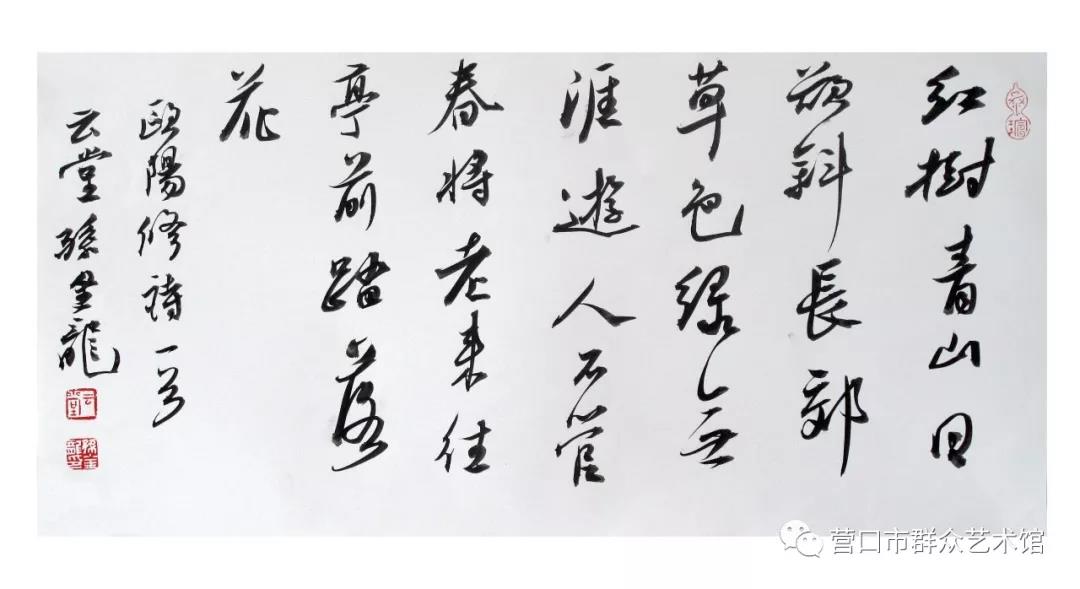 紅樹青山日
欲斜長郊
草色綠無
涯遊人不管
春將老來往
亭前踏落
花
歐陽修詩一首
云堂孫金龍
云堂
孫金龍印
营口市群众艺术馆